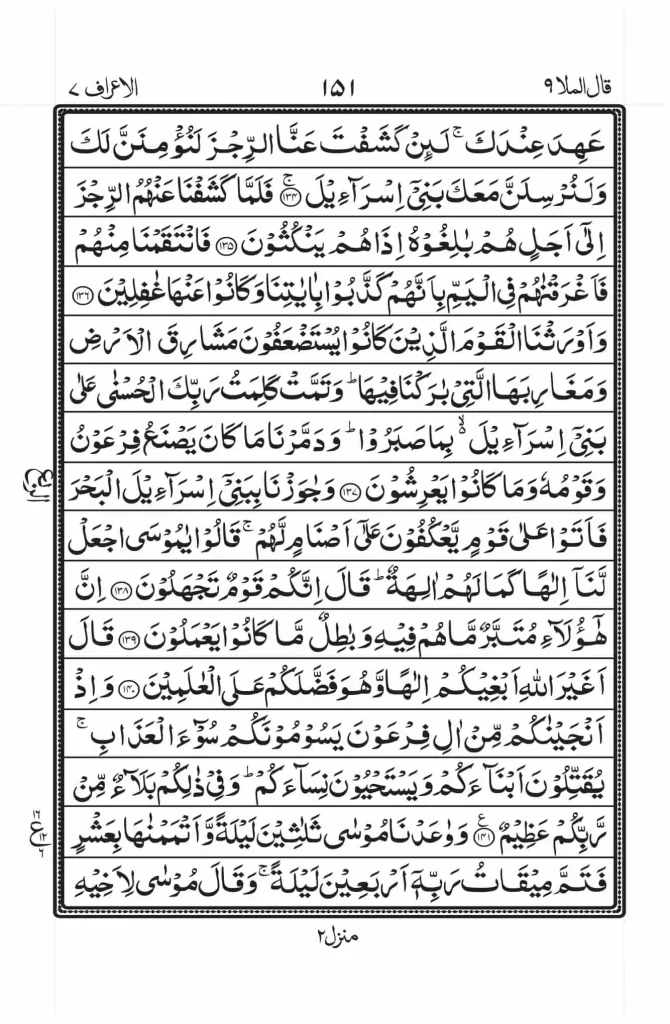 قال الملا ٩ ١٥١ الاعراف ٧
عَهِدَ عِنْدَكَ ۚ لَئِنْ كَشَفْتَ عَنَّا الرِّجْزَ لَنُؤْمِنَنَّ لَكَ
وَلَنُرْسِلَنَّ مَعَكَ بَنِیْۤ اِسْرَآءِیْلَ ﴿١٣٤﴾ۚ فَلَمَّا كَشَفْنَا عَنْهُمُ الرِّجْزَ
اِلٰۤی اَجَلٍ هُمْ بٰلِغُوْهُ اِذَا هُمْ یَنْكُثُوْنَ ﴿١٣٥﴾ فَانْتَقَمْنَا مِنْهُمْ
فَاَغْرَقْنٰهُمْ فِی الْیَمِّ بِاَنَّهُمْ كَذَّبُوْا بِاٰیٰتِنَا وَكَانُوْا عَنْهَا غٰفِلِیْنَ ﴿١٣٦﴾
وَاَوْرَثْنَا الْقَوْمَ الَّذِیْنَ كَانُوْا یُسْتَضْعَفُوْنَ مَشَارِقَ الْاَرْضِ
وَمَغَارِبَهَا الَّتِیْ بٰرَكْنَا فِیْهَا ؕ وَتَمَّتْ كَلِمَتُ رَبِّكَ الْحُسْنٰی عَلٰی
بَنِیْۤ اِسْرَآءِیْلَ ۙ۬ بِمَا صَبَرُوْا ؕ وَدَمَّرْنَا مَا كَانَ یَصْنَعُ فِرْعَوْنُ
وَقَوْمُهٗ وَمَا كَانُوْا یَعْرِشُوْنَ ﴿١٣٧﴾ وَجٰوَزْنَا بِبَنِیْۤ اِسْرَآءِیْلَ الْبَحْرَ
فَاَتَوْا عَلٰی قَوْمٍ یَّعْكُفُوْنَ عَلٰۤی اَصْنَامٍ لَّهُمْ ۚ قَالُوْا یٰمُوْسَی اجْعَلْ
لَّنَاۤ اِلٰهًا كَمَا لَهُمْ اٰلِهَةٌ ؕ قَالَ اِنَّكُمْ قَوْمٌ تَجْهَلُوْنَ ﴿١٣٨﴾ اِنَّ
هٰۤؤُلَآءِ مُتَبَّرٌ مَّا هُمْ فِیْهِ وَبٰطِلٌ مَّا كَانُوْا یَعْمَلُوْنَ ﴿١٣٩﴾ قَالَ
اَغَیْرَ اللّٰهِ اَبْغِیْكُمْ اِلٰهًا وَّهُوَ فَضَّلَكُمْ عَلَی الْعٰلَمِیْنَ ﴿١٤٠﴾ وَاِذْ
اَنْجَیْنٰكُمْ مِّنْ اٰلِ فِرْعَوْنَ یَسُوْمُوْنَكُمْ سُوْٓءَ الْعَذَابِ ۚ
یُقَتِّلُوْنَ اَبْنَآءَكُمْ وَیَسْتَحْیُوْنَ نِسَآءَكُمْ ؕ وَفِیْ ذٰلِكُمْ بَلَآءٌ مِّنْ
رَّبِّكُمْ عَظِیْمٌ ﴿١٤١﴾ع وَوٰعَدْنَا مُوْسٰی ثَلٰثِیْنَ لَیْلَةً وَّاَتْمَمْنٰهَا بِعَشْرٍ
فَتَمَّ مِیْقَاتُ رَبِّهٖۤ اَرْبَعِیْنَ لَیْلَةً ۚ وَقَالَ مُوْسٰی لِاَخِیْهِ
منزل ٢